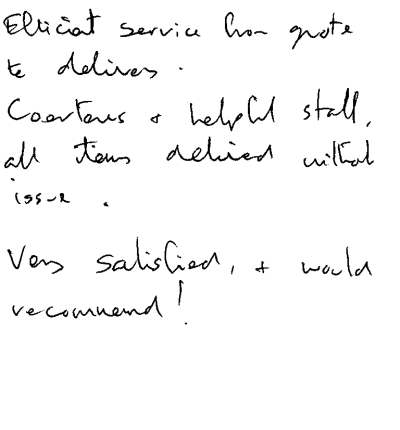 Efficient service from quote
to delivery.
Courteous + helpful staff,
all items delivered without
issue.
Very satisfied, + would
recommend!